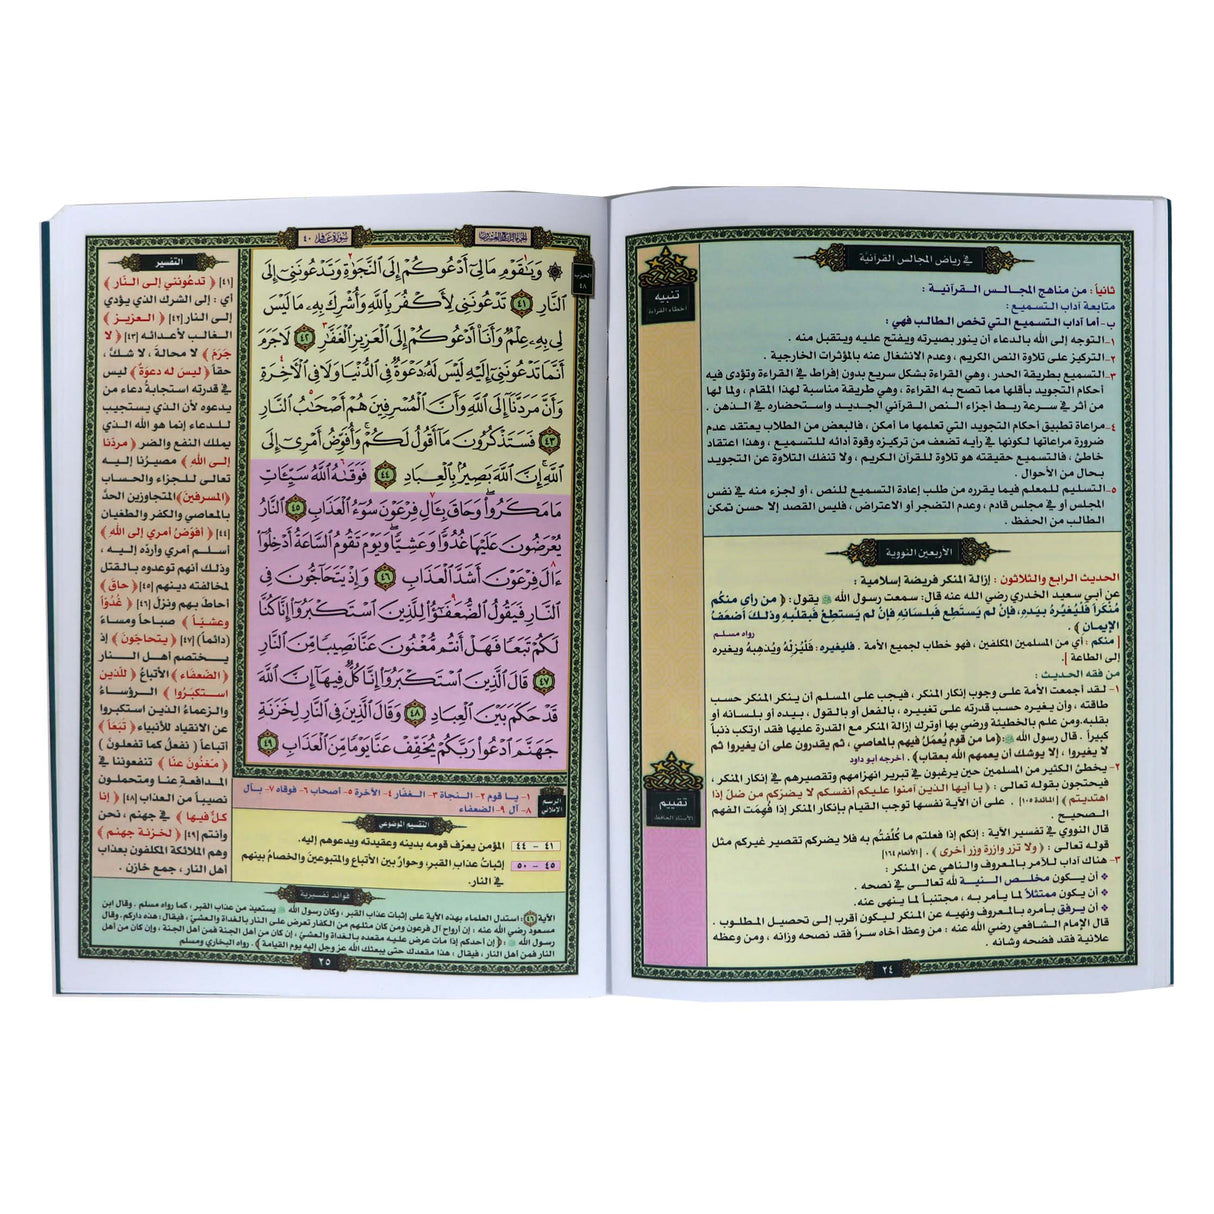 في رياض المجالس القرآنية
ثانياً : من مناهج المجالس القرآنية :
متابعة آداب التسميع :
ب- أما آداب التسميع التي تخص الطالب فهي :
١- التوجه إلى الله بالدعاء أن ينور بصيرته ويفتح عليه ويتقبل منه .
٢- التركيز على تلاوة النص الكريم ، وعدم الانشغال عنه بالمؤثرات الخارجية .
٣- التسميع بطريقة الحدر ، وهي القراءة بشكل سريع بدون إفراط في القراءة وتؤدى فيه
أحكام التجويد بأقلها مما تصح به القراءة ، وهي طريقة مناسبة لهذا المقام ، ولما لها
من أثر في سرعة ربط أجزاء النص القرآني الجديد واستحضاره في الذهن .
٤- مراعاة تطبيق أحكام التجويد التي تعلمها ما أمكن ، فالبعض من الطلاب يعتقد عدم
ضرورة مراعاتها لكونها في رأيه تضعف من تركيزه وقوة أدائه للتسميع ، وهذا اعتقاد
خاطئ ، فالتسميع حقيقته هو تلاوة للقرآن الكريم ، ولا تنفك التلاوة عن التجويد
بحال من الأحوال .
٥- التسليم للمعلم فيما يقرره من طلب إعادة التسميع للنص ، أو لجزء منه في نفس
المجلس أو في مجلس قادم ، وعدم التضجر أو الاعتراض ، فليس القصد إلا حسن تمكن
الطالب من الحفظ .
الأربعين النووية
الحديث الرابع والثلاثون : إزالة المنكر فريضة إسلامية :
عن أبي سعيد الخدري رضي الله عنه قال: سمعت رسول الله ﷺ يقول: ﴿ من رأى منكم
مُنْكَراً فَلْيُغَيِّرهُ بيَدِهِ، فإنْ لم يَستَطِع فبلسانه فإنْ لم يَستَطِع فبقلبه وذلك أضعفُ
الإيمان ﴾ . رواه مسلم
[ منكم : أي من المسلمين المكلفين ، فهو خطاب لجميع الأمة . فليغيره: فَلْيُزِلْهُ ويُذهِبهُ ويغيره
إلى الطاعة ].
من فقه الحديث :
١- لقد أجمعت الأمة على وجوب إنكار المنكر ، فيجب على المسلم أن ينكر المنكر حسب
طاقته ، وأن يغيره حسب قدرته على تغييره ، بالفعل أو بالقول ، بيده أو بلسانه أو
بقلبه.ومن علم بالخطيئة ورضي بها أوترك إزالة المنكر مع القدرة عليها فقد ارتكب ذنباً
كبيراً . قال رسول الله ﷺ :﴿ما من قوم يُعمَلُ فيهم بالمعاصي ، ثم يقدرون على أن يغيروا ثم
لا يغيروا ، إلا يوشك أن يعمهم الله بعقاب﴾ . أخرجه أبو داود
٢- يخطئ الكثير من المسلمين حين يرغبون في تبرير انهزامهم وتقصيرهم في إنكار المنكر ،
فيحتجون بقوله تعالى : ﴿ يا أيها الذين آمنوا عليكم أنفسكم لا يضركم من ضل إذا
اهتديتم ﴾ [المائدة ١٠٥] . على أن الآية نفسها توجب القيام بإنكار المنكر إذا فُهِمَت الفهم
الصحيح .
قال النووي في تفسير الآية : إنكم إذا فعلتم ما كُلِّفتُم به فلا يضركم تقصير غيركم مثل
قوله تعالى : ﴿ ولا تزر وازرة وزر أخرى ﴾ . [الأنعام ١٦٤]
٣- هناك آداب للآمر بالمعروف والناهي عن المنكر :
أن يكون مخلـص النـية لله تعالـى في نصحه .
أن يكون ممتثلاً لما يأمر به ، مجتنباً لما ينهى عنه.
أن يرفق بأمره بالمعروف ونهيه عن المنكر ليكون أقرب إلى تحصيل المطلوب .
قال الإمام الشافعي رضي الله عنه : من وعظ أخاه سراً فقد نصحه وزانه ، ومن وعظه
علانية فقد فضحه وشانه .
٢٤
تنبيه
أخطاء القراءة
تقييم
الأستاذ الحافظ
سورة غافر ٤٠
الحزب
٤٨
۞ وَيَٰقَوۡمِ مَا لِيٓ أَدۡعُوكُمۡ إِلَى ٱلنَّجَوٰةِ وَتَدۡعُونَنِيٓ إِلَى
ٱلنَّارِ ٤١ تَدۡعُونَنِي لِأَكۡفُرَ بِٱللَّهِ وَأُشۡرِكَ بِهِۦ مَا لَيۡسَ
لِي بِهِۦ عِلۡمٞ وَأَنَا۠ أَدۡعُوكُمۡ إِلَى ٱلۡعَزِيزِ ٱلۡغَفَّٰرِ ٤٢ لَا جَرَمَ
أَنَّمَا تَدۡعُونَنِيٓ إِلَيۡهِ لَيۡسَ لَهُۥ دَعۡوَةٞ فِي ٱلدُّنۡيَا وَلَا فِي ٱلۡأٓخِرَةِ
وَأَنَّ مَرَدَّنَآ إِلَى ٱللَّهِ وَأَنَّ ٱلۡمُسۡرِفِينَ هُمۡ أَصۡحَٰبُ ٱلنَّارِ
٤٣ فَسَتَذۡكُرُونَ مَآ أَقُولُ لَكُمۡۚ وَأُفَوِّضُ أَمۡرِيٓ إِلَى
ٱللَّهِۚ إِنَّ ٱللَّهَ بَصِيرُۢ بِٱلۡعِبَادِ ٤٤ فَوَقَىٰهُ ٱللَّهُ سَيِّـَٔاتِ
مَا مَكَرُواْۖ وَحَاقَ بِـَٔالِ فِرۡعَوۡنَ سُوٓءُ ٱلۡعَذَابِ ٤٥ ٱلنَّارُ
يُعۡرَضُونَ عَلَيۡهَا غُدُوّٗا وَعَشِيّٗاۖ وَيَوۡمَ تَقُومُ ٱلسَّاعَةُ أَدۡخِلُوٓاْ
ءَالَ فِرۡعَوۡنَ أَشَدَّ ٱلۡعَذَابِ ٤٦ وَإِذۡ يَتَحَآجُّونَ فِي
ٱلنَّارِ فَيَقُولُ ٱلضُّعَفَٰٓؤُاْ لِلَّذِينَ ٱسۡتَكۡبَرُوٓاْ إِنَّا كُنَّا
لَكُمۡ تَبَعٗا فَهَلۡ أَنتُم مُّغۡنُونَ عَنَّا نَصِيبٗا مِّنَ ٱلنَّارِ
٤٧ قَالَ ٱلَّذِينَ ٱسۡتَكۡبَرُوٓاْ إِنَّا كُلّٞ فِيهَآ إِنَّ ٱللَّهَ
قَدۡ حَكَمَ بَيۡنَ ٱلۡعِبَادِ ٤٨ وَقَالَ ٱلَّذِينَ فِي ٱلنَّارِ لِخَزَنَةِ
جَهَنَّمَ ٱدۡعُواْ رَبَّكُمۡ يُخَفِّفۡ عَنَّا يَوۡمٗا مِّنَ ٱلۡعَذَابِ ٤٩
الرسم
الإملائي
١- يا قوم ٢- النجاة ٣- الغفار ٤- الآخرة ٥- أصحاب ٦- فوقاه ٧- بآل
٨- آل ٩- الضعفاء
التقسيم الموضوعي
٤١ - ٤٤ المؤمن يعرّف قومه بدينه وعقيدته ويدعوهم إليه.
٤٥ - ٥٠ إثباتُ عذاب القبر، وحوارٌ بين الأتباع والمتبوعين والخصامُ بينهم
في النار.
التفسير
[٤١] ﴿ تدعونني إلى النّار ﴾
أي : إلى الشرك الذي يؤدي
إلى النار [٤٢] ﴿ العزيز ﴾
الغالب لأعدائه [٤٣] ﴿ لا
جَرَمَ ﴾ لا محالةَ ، لا شكَّ ،
حقاً ﴿ ليس له دعوَةٌ ﴾ ليس
في قدرته استجابةُ دعاء من
يدعوه لأن الذي يستجيب
للدعاء إنما هو الله الذي
يملك النفع والضر ﴿ مردّنا
إلى الله ﴾ مصيرُنا إليه
تعالى للجزاء والحساب
﴿المسرفين﴾المتجاوزين الحدَّ
بالمعاصي والكفر والطغيان
[٤٤] ﴿ أفوّضُ أمري إلى الله ﴾
أسلم أمري وأردّه إليه ،
وذلك أنهم توعدوه بالقتل
لمخالفته دينهم [٤٥] ﴿ حاقَ ﴾
أحاط بهم ونزل [٤٦] ﴿ غُدُوّاً
وعشيّاً ﴾ صباحاً ومساءً
(دائماً) [٤٧] ﴿ يتحاجّونَ ﴾ إذ
يختصم أهل النار
﴿ الضّعفاء ﴾ الأتباعُ ﴿ للّذين
استكبَرُوا ﴾ الرؤساءُ
والزعماءُ الذين استكبروا
عن الانقياد للأنبياء ﴿ تَبَعاً ﴾
أتباعاً ( نفعلُ كما تفعلونَ )
﴿ مغنُونَ عنا ﴾ تنفعوننا في
المدافعة عنا ومتحملون
نصيباً من العذاب [٤٨] ﴿ إنا
كلٌّ فيها ﴾ في جهنم ، نحن
وأنتم [٤٩] ﴿ لخزنة جهنم ﴾
وهم الملائكة المكلفون بعذاب
أهل النار ، جمع خازن .
فوائد تفسيرية
الآية ٤٦: استدل العلماء بهذه الآية على إثبات عذاب القبر، وكان رسول الله ﷺ يستعيذ من عذاب القبر، كما رواه مسلم . وقال ابن
مسعود رضي الله عنه : إن أرواح آل فرعون ومن كان مثلهم من الكفار تعرض على النار بالغداة والعشيّ، فيقال: هذه داركم. وقال
رسول الله ﷺ :﴿ إن أحدكم إذا مات عرض عليه مقعده بالغداة والعشيّ، إن كان من أهل الجنة فمن أهل الجنة، وإن كان من أهل
النار فمن أهل النار، فيقال : هذا مقعدك حتى يبعثك الله عز وجل إليه يوم القيامة﴾. رواه البخاري ومسلم
٢٥